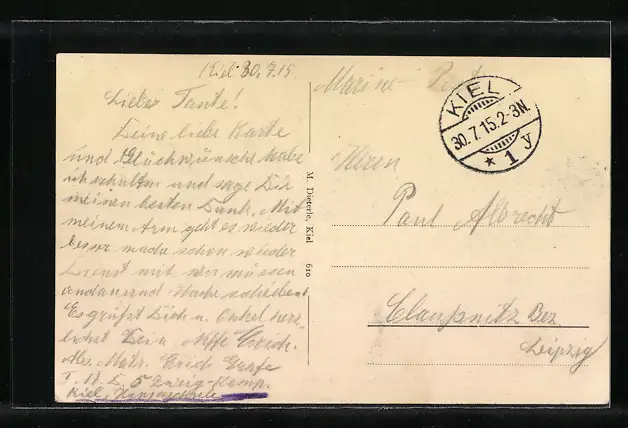 Kiel 30.7.15.
Liebe Tante!
Deine liebe Karte
und Glückwünsche habe
ich erhalten und sage Dir
meinen besten Dank. Mit
meinem Arm geht es wieder
besser mache schon wieder
Dienst mit wir müssen
andauernd Wache schieben
Es grüßt Dich u. Onkel herz
lichst Dein Neffe Erich.
Matr. Erich
5
Kiel,
M. Dieterle, Kiel. 610
Marine Post
KIEL
30.7.15.2-3N.
* 1 y
Herrn
Paul Albrecht
Claußnitz Bez.
Leipzig